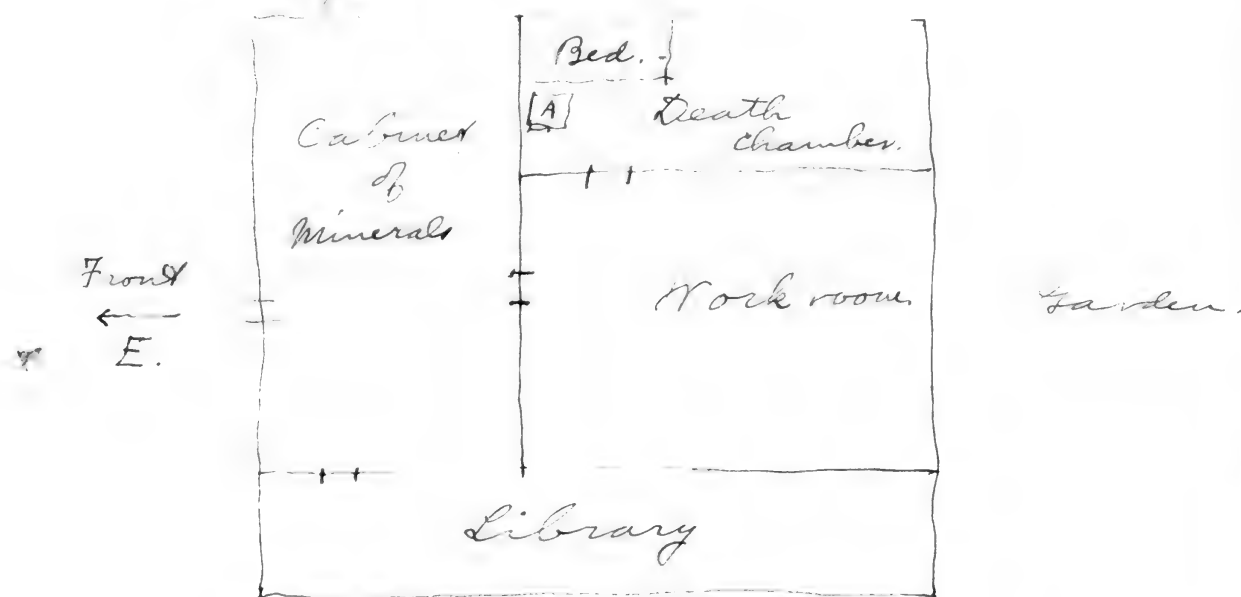 Bed.
A
Death
Chamber.
Cabinet
of
Minerals
Front
E.
Work room
Garden.
Library